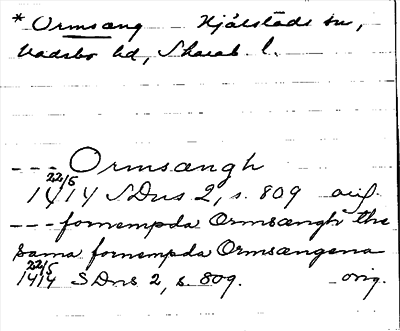 * Ormsäng Hjälstads sn,
Vadsbo hd, Skarab. l.
--- Ormsængh
22/5
1414 SDns 2, s. 809 orig.
--- fornempda Ormsængh the
sama fornempda Ormsængena
22/5
1414 SDns 2, s. 809. orig.